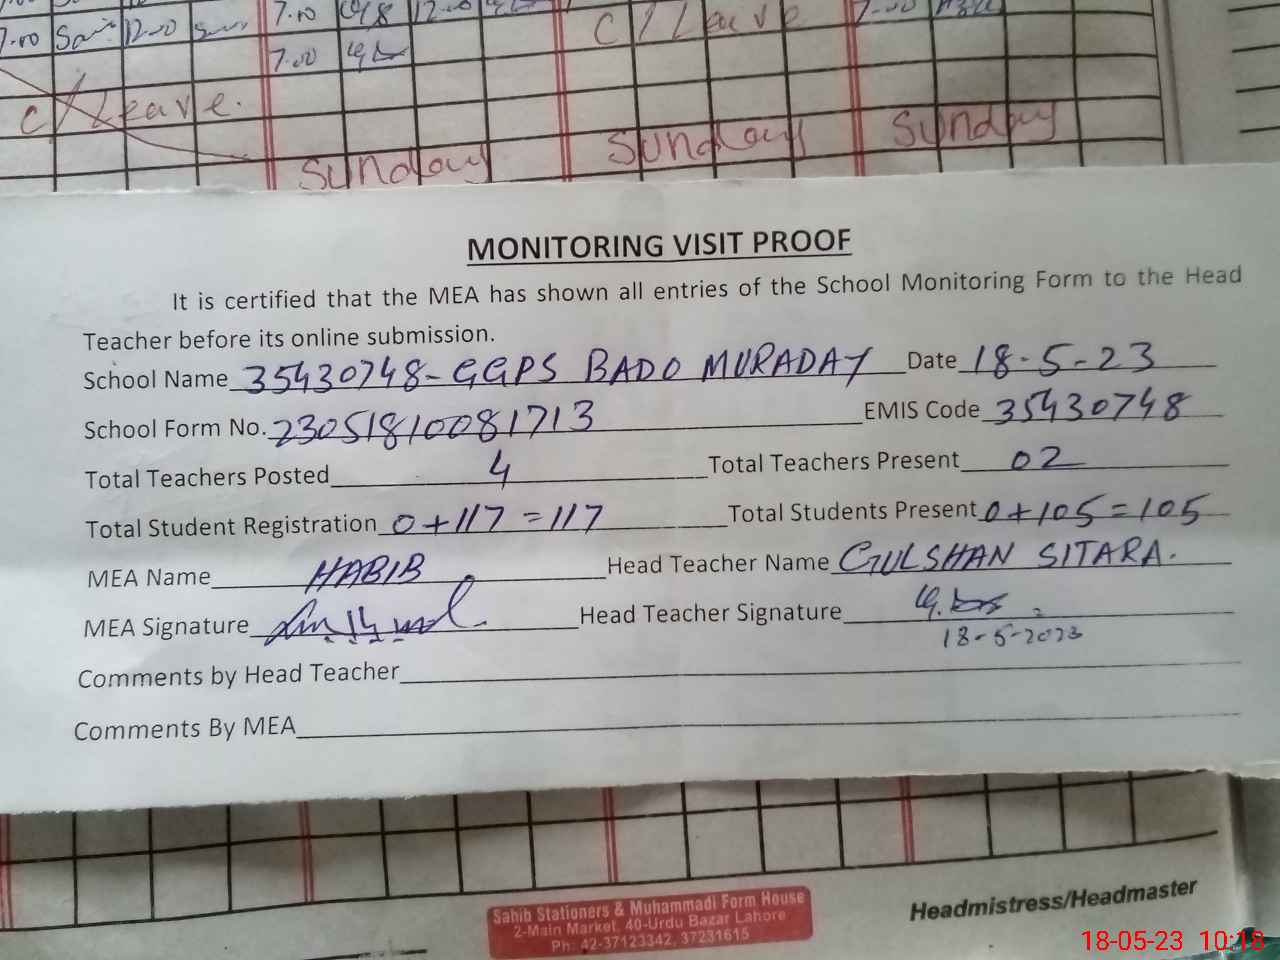 7.00 12-00
7.00 Sai 12-00
7.00
C/Leave
C/Leave.
Sunday Sunday Sunday
MONITORING VISIT PROOF
It is certified that the MEA has shown all entries of the School Monitoring Form to the Head
Teacher before its online submission.
School Name 35430748-GGPS BADO MURADAY Date 18-5-23
School Form No. 23051810081713 EMIS Code 35430748
Total Teachers Posted 4 Total Teachers Present 02
Total Student Registration 0+117=117 Total Students Present 0+105=105
MEA Name HABIB Head Teacher Name GULSHAN SITARA.
MEA Signature Head Teacher Signature
18-5-2023
Comments by Head Teacher
Comments By MEA
Sahib Stationers & Muhammadi Form House
2-Main Market, 40-Urdu Bazar Lahore
Ph: 42-37123342, 37231615
Headmistress/Headmaster
18-05-23 10:18